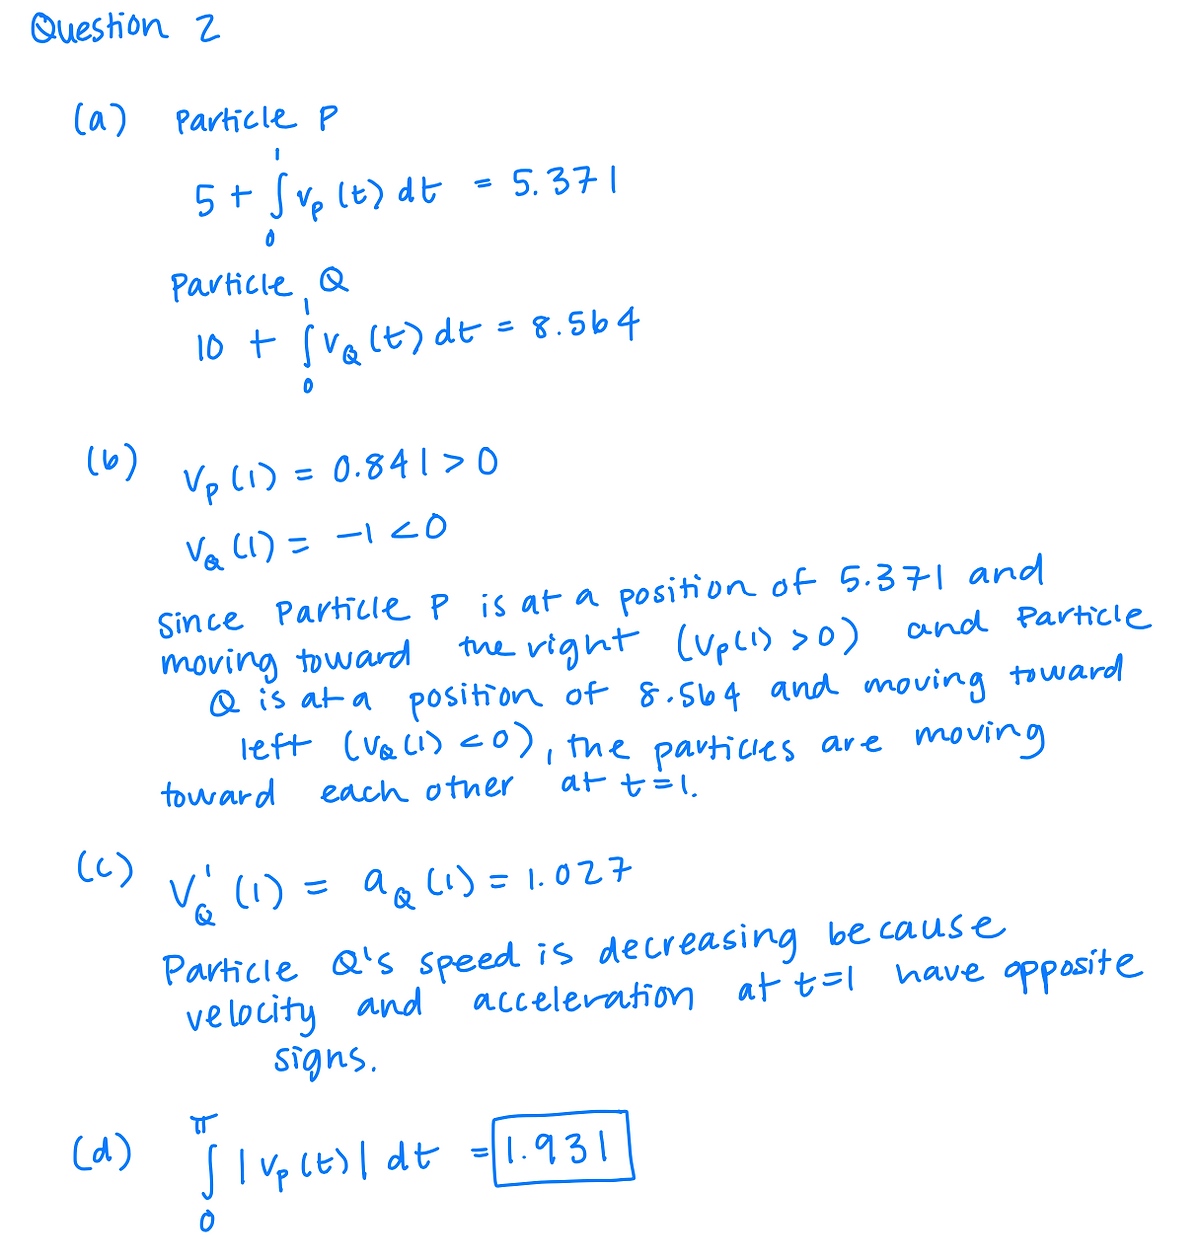 Question 2
(a) Particle P
5 + ∫₀¹ v_p (t) dt = 5.371
Particle Q
10 + ∫₀¹ v_Q (t) dt = 8.564
(b) v_p (1) = 0.841 > 0
v_Q (1) = -1 < 0
Since Particle P is at a position of 5.371 and
moving toward the right (v_p(1) > 0) and Particle
Q is at a position of 8.564 and moving toward
left (v_Q(1) < 0), the particles are moving
toward each other at t=1.
(c) v'_Q (1) = a_Q (1) = 1.027
Particle Q's speed is decreasing because
velocity and acceleration at t=1 have opposite
signs.
(d) ∫₀^π |v_p (t)| dt = 1.931